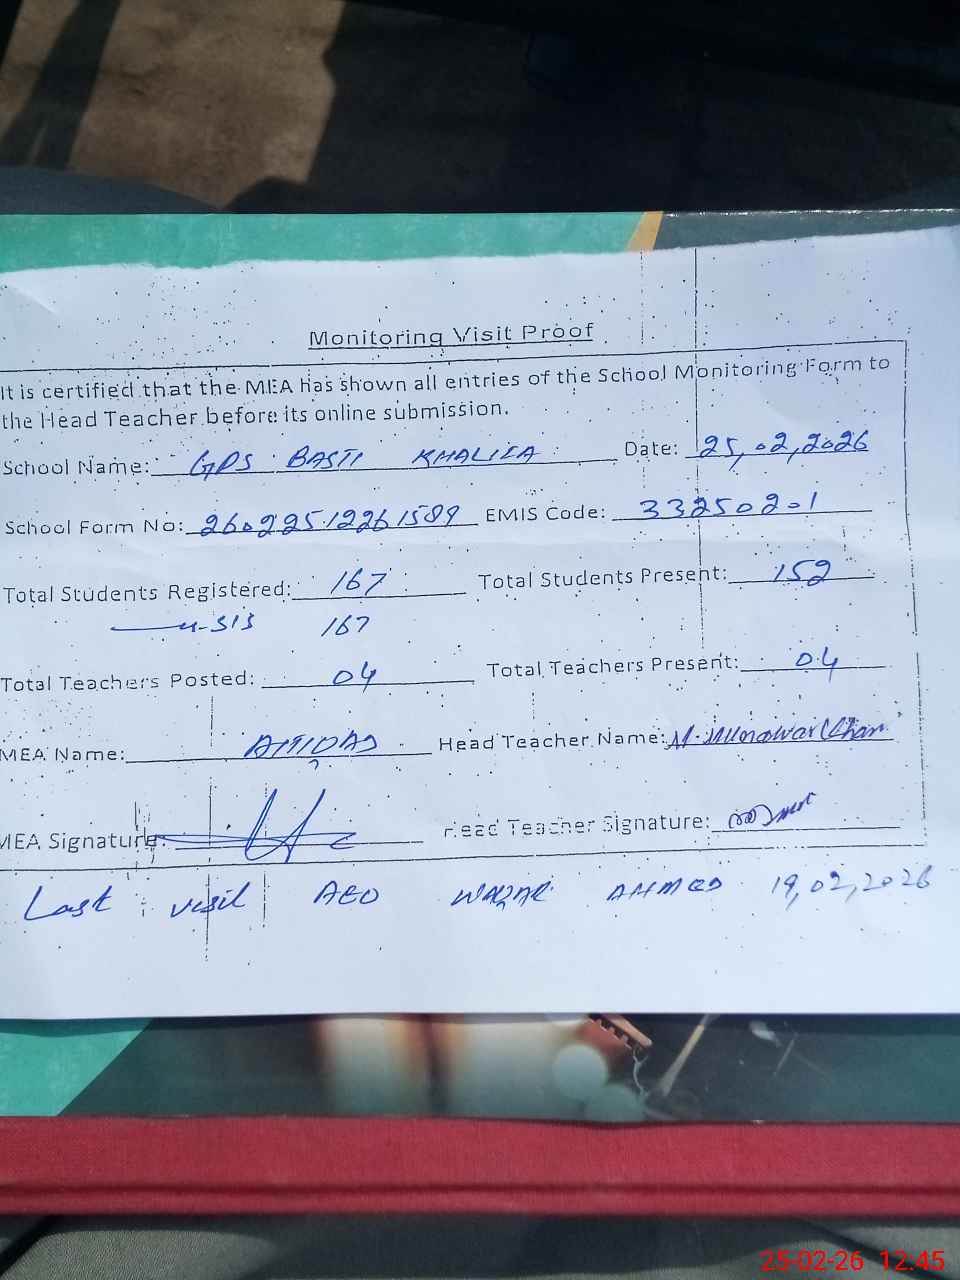 Monitoring Visit Proof
It is certified that the MEA has shown all entries of the School Monitoring Form to
the Head Teacher before its online submission.
School Name: GPS BASTI KHALIFA Date: 25,02,2026
School Form No: 26022512261589 EMIS Code: 33250201
Total Students Registered: 167 Total Students Present: 152
SIS 167
Total Teachers Posted: 04 Total Teachers Present: 04
MEA Name: Head Teacher Name: M. Munawar Khan
MEA Signature: Head Teacher Signature:
Last visit AEO WAQAR AHMED 19,02,2026
25-02-26 12:45